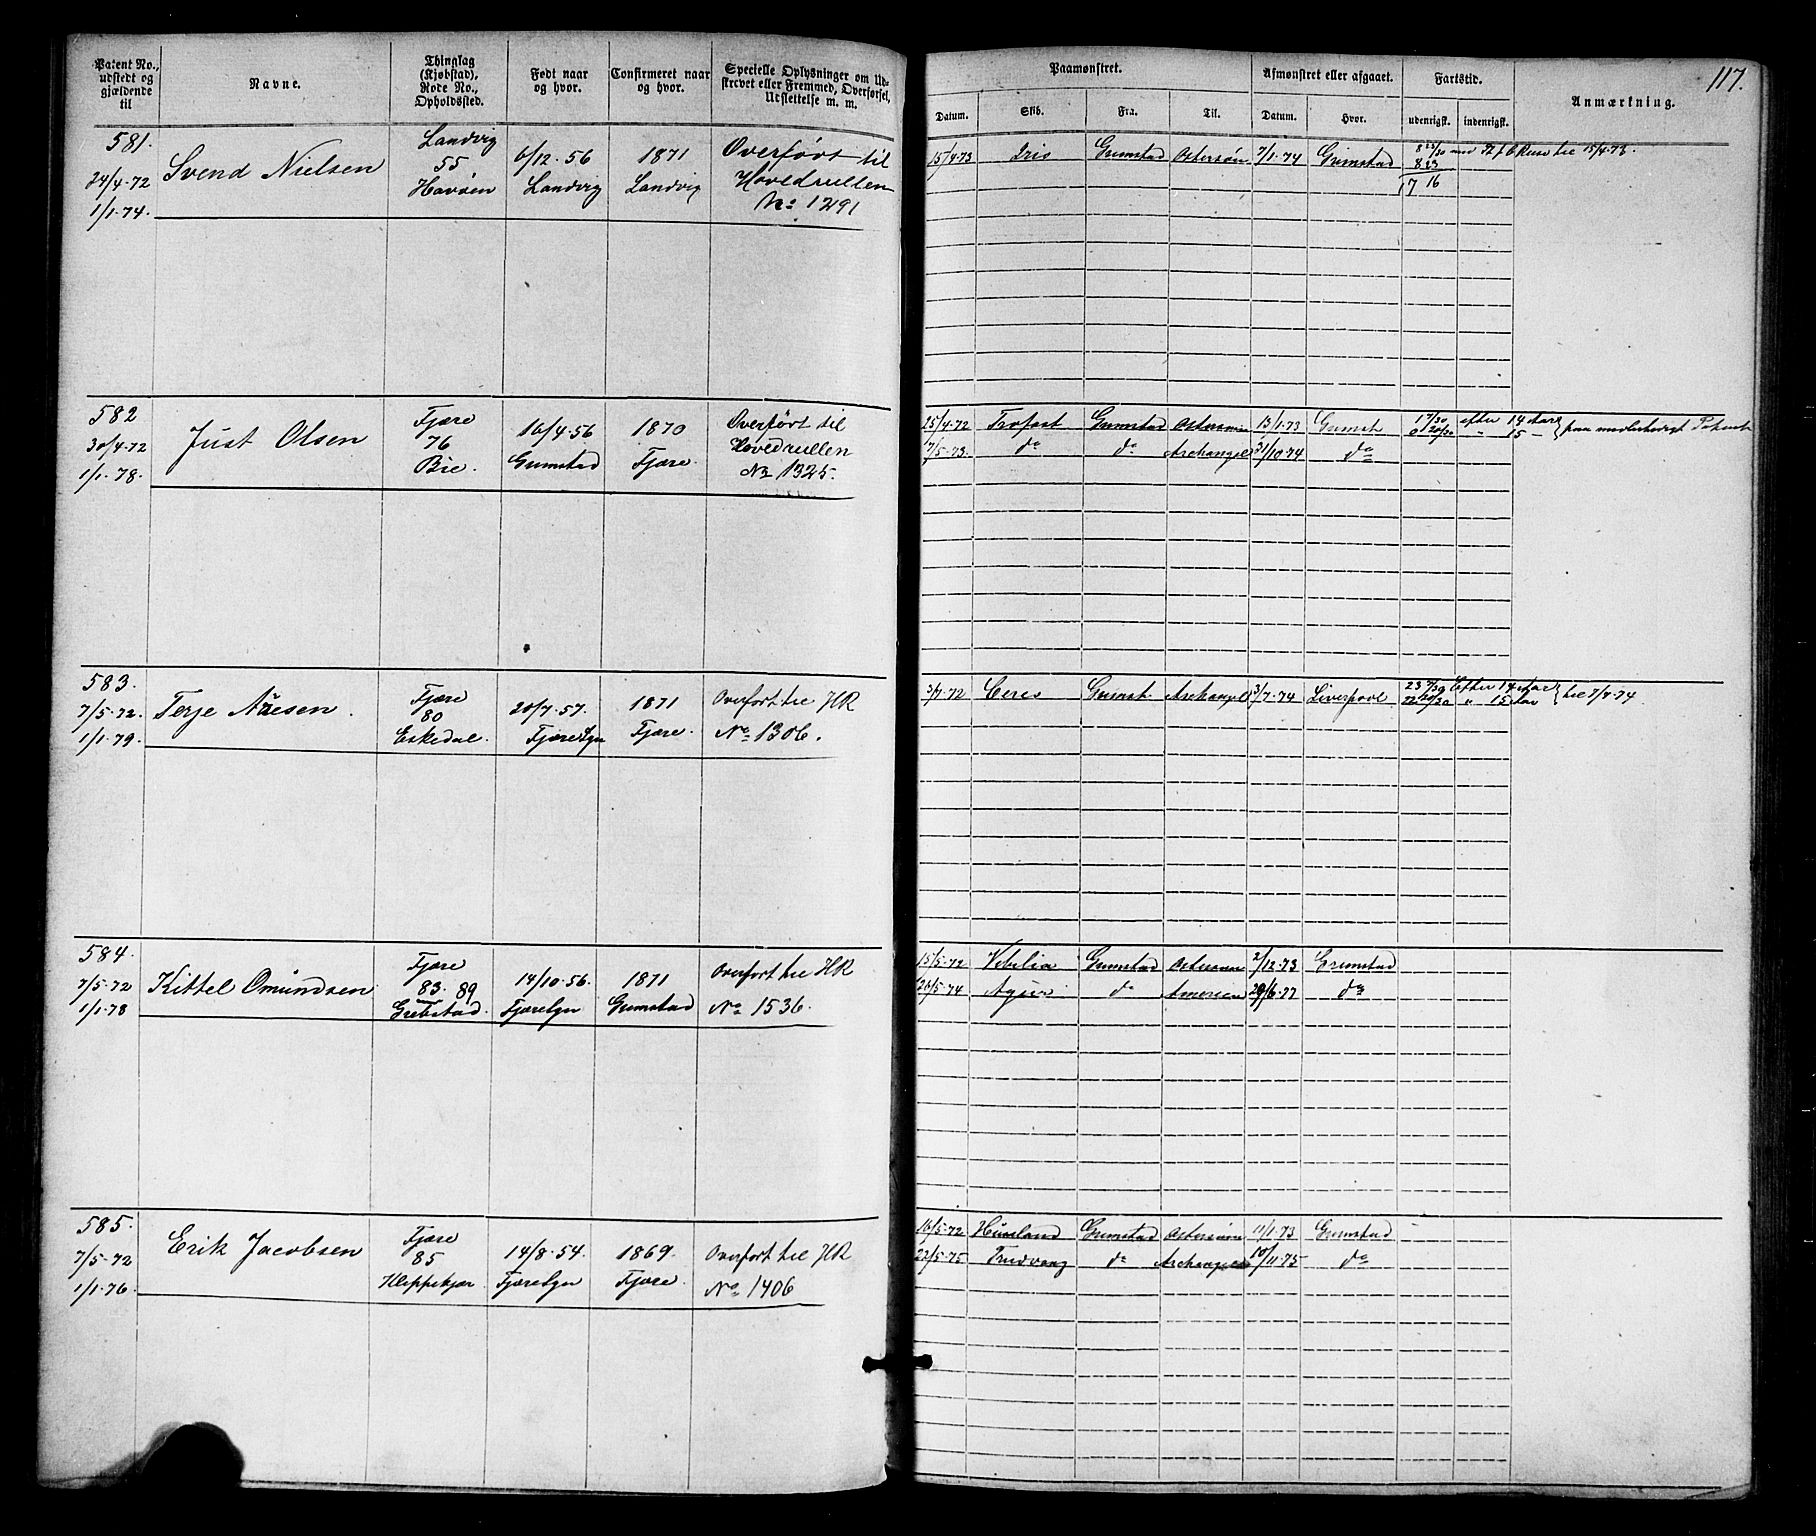 117.
Patent No., udstedt og gjældende til
Navne.
Thinglag (Kjøbstad), Rode No., Opholdssted.
Født naar og hvor.
Confirmeret naar og hvor.
Specielle Oplysninger om Udskrevet eller Fremmed, Overførsel, Udslettelse m. m.
Paamønstret.
Datum.
Skib.
Fra.
Til.
Afmønstret eller afgaaet.
Datum.
Hvor.
Fartstid.
udenrigsk.
indenrigsk.
Anmærkning.
581.
24/4-72
1/1-74.
Svend Nielsen
Landvig
55
Havøen
6/12-56
Landvig
1871
Landvig
Overført til
Hovedrullen
No 1291
15/4-73 Iris Grimstad Østersøen 7/1-74 Grimstad
til 15/4-73.
17 16
582
30/4-72
1/1-78.
Just Olsen
Fjære
76
Bie.
16/4-56
Grimstad
1870
Fjære.
Overført til
Hovedrullen
No 1325.
25/4-72 Trofast Grimstad Østersøen 13/1-73 Grimst
17/5-73. do do Archangel 31/10-74 do
efter 14 Aar
" 15 —
paa
583.
7/5-72.
1/1-79.
Terje
Fjære
80
Eskedal.
20/7-57.
Fjære Sgn
1871
Fjære.
Overført til HR
No 1306.
3/7-72 Ceres Grimst. Archangel 3/7-74 Liverpool
Efter 14 Aar
" 15 Aar
til 7/7-74
584.
7/5-72
1/1-78
Kittel Omundsen
Fjære
83. 89
Grebstad.
14/10-56.
Fjære Sgn
1871
Grimstad
Overført til HR
No 1536.
15/5-72 Vibilia Grimstad Østersøen 2/12-73 Grimstad
26/5-74 do 29/6-77 do
585.
7/5-72
1/1-76
Erik Jacobsen
Fjære
85
Kleppekjær
14/8-54.
Fjære Sgn
1869.
Fjære.
Overført til HR
No 1406
16/5-72 Grimstad Østersøen 11/1-73 Grimstad
22/5-75 Trudvang do Archangel 10/11-75 do